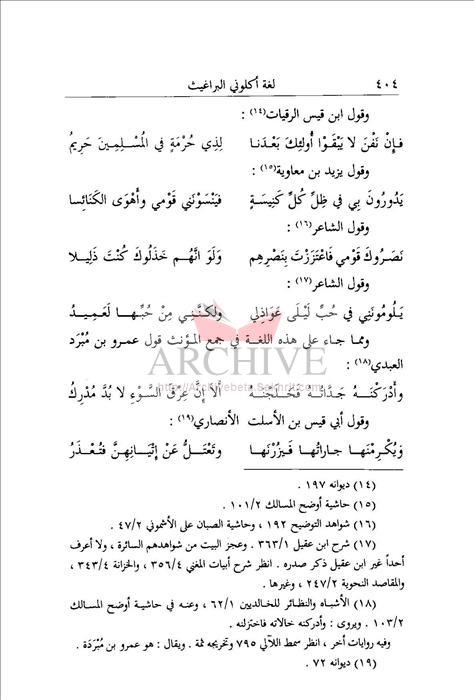 ٤٠٤ لغة أكلوني البراغيث
وقول ابن قيس الرقيات(١٤) :
فإِنْ نَفْنَ لا يَبْقَوْا أُولئِكَ بَعْدَنا لِذِي حُرْمَةٍ في المُسْلِمِينَ حَرِيمُ
وقول يزيد بن معاوية(١٥) :
يَدُورُونَ بِي في ظِلِّ كُلِّ كَنِيسَةٍ فيَنْسَوْنَنِي قَوْمي وأَهْوَى الكَنائِسا
وقول الشاعر(١٦) :
نَصَرُوكَ قَوْمي فَاعْتَزَزْتَ بِنَصْرِهِم وَلَوَ انَّهُم خَذَلُوكَ كُنْتَ ذَلِيلا
وقول الشاعر(١٧) :
يَلُومُونَنِي في حُبِّ لَيْلَى عَوَاذِلي ولكنَّنِي مِنْ حُبِّها لَعَمِيدُ
ومما جاء على هذه اللغة في جمع المؤنث قول عمرو بن مُبْرَد
العبدي(١٨) :
ARCHIVE
http://Archivebeta.Sakhrit.com
وأَدْرَكْنَهُ جَدَّاتُهُ فَخَلَجْنَهُ أَلاَ إِنَّ عِرْقَ السَّوْءِ لا بُدَّ مُدْرِكُ
وقول أبي قيس بن الأسلت الأنصاري(١٩) :
وَيُكْرِمْنَها جاراتُها فَيَزُرْنَها وتَعْتَلُّ عَنْ إِتْيانِهِنَّ فتُعْذَرُ
(١٤) ديوانه ١٩٧ .
(١٥) حاشية أوضح المسالك ١٠١/٢ .
(١٦) شواهد التوضيح ١٩٢ ، وحاشية الصبان على الأشموني ٤٧/٢ .
(١٧) شرح ابن عقيل ٣٦٣/١ . وعجز البيت من شواهدهم السائرة ، ولا أعرف
أحداً غير ابن عقيل ذكر صدره . انظر شرح أبيات المغني ٣٥٦/٤ ، والخزانة ٣٤٣/٤ ،
والمقاصد النحوية ٢٤٧/٢ ، وغيرها .
(١٨) الأشباه والنظائر للخالديين ٦٢/١ ، وعنه في حاشية أوضح المسالك
١٠٣/٢ . ويروى : وأدركنه خالاته فاختزلنه .
وفيه روايات أخر ، انظر سمط اللآلي ٧٩٥ وتخريجه ثمة . ويقال : هو عمرو بن مُبْرَدَة .
(١٩) ديوانه ٧٢ .